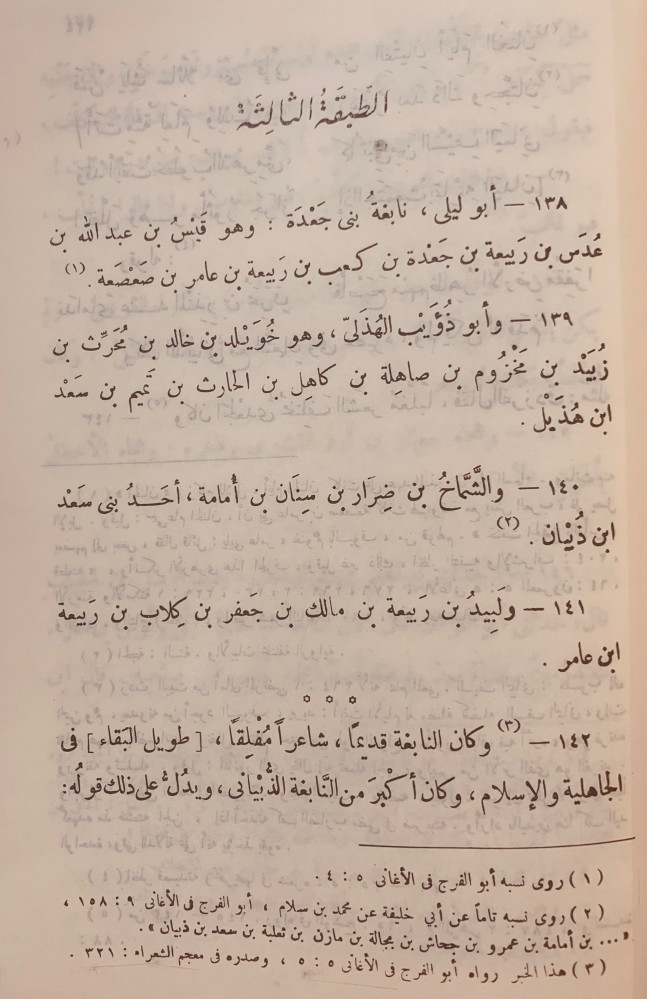 الطَّبَقَةُ الثالِثَة
١٣٨ — أبو ليلى ، نابغةُ بنى جَعْدَة : وهو قَيْسُ بن عبد الله بن
عُدَس بن رَبيعة بن جَعْدة بن كعب بن رَبيعة بن عامر بن صَعْصَعة . (١)
١٣٩ — وأبو ذُؤَيْب الهُذَلىّ ، وهو خُوَيْلد بن خالد بن مُحَرِّث بن
زُبَيْد بن مَخْزُوم بن صاهِلة بن كاهِل بن الحارث بن تَميم بن سَعْد
ابن هُذَيْل .
١٤٠ — والشَّمَّاخُ بن ضِرَار بن سِنَان بن أُمامة ، أحَدُ بنى سَعْد
ابن ذُبْيان . (٢)
١٤١ — ولَبِيدُ بن رَبيعة بن مالك بن جَعفر بن كِلاب بن رَبيعة
ابن عامر .
* * *
١٤٢ — (٣) وكان النابغة قديمًا ، شاعراً مُفْلِقًا ، [ طويل البَقاء ] فى
الجاهلية والإسلام ، وكان أكْبَرَ من النَّابغة الذُّبْيانى ، ويدُلُّ على ذلك قولُه :
( ١ ) روى نسبه أبو الفرج فى الأغانى ٥ : ٤ .
( ٢ ) روى نسبه تاماً عن أبي خليفة عن محمد بن سلام ، أبو الفرج فى الأغانى ٩ : ١٥٨ ،
« ... بن أمامة بن عمرو بن جحاش بن بجالة بن مازن بن ثعلبة بن سعد بن ذبيان » .
( ٣ ) هذا الخبر رواه أبو الفرج فى الأغانى ٥ : ٥ ، وصدره فى معجم الشعراء : ٣٢١ .